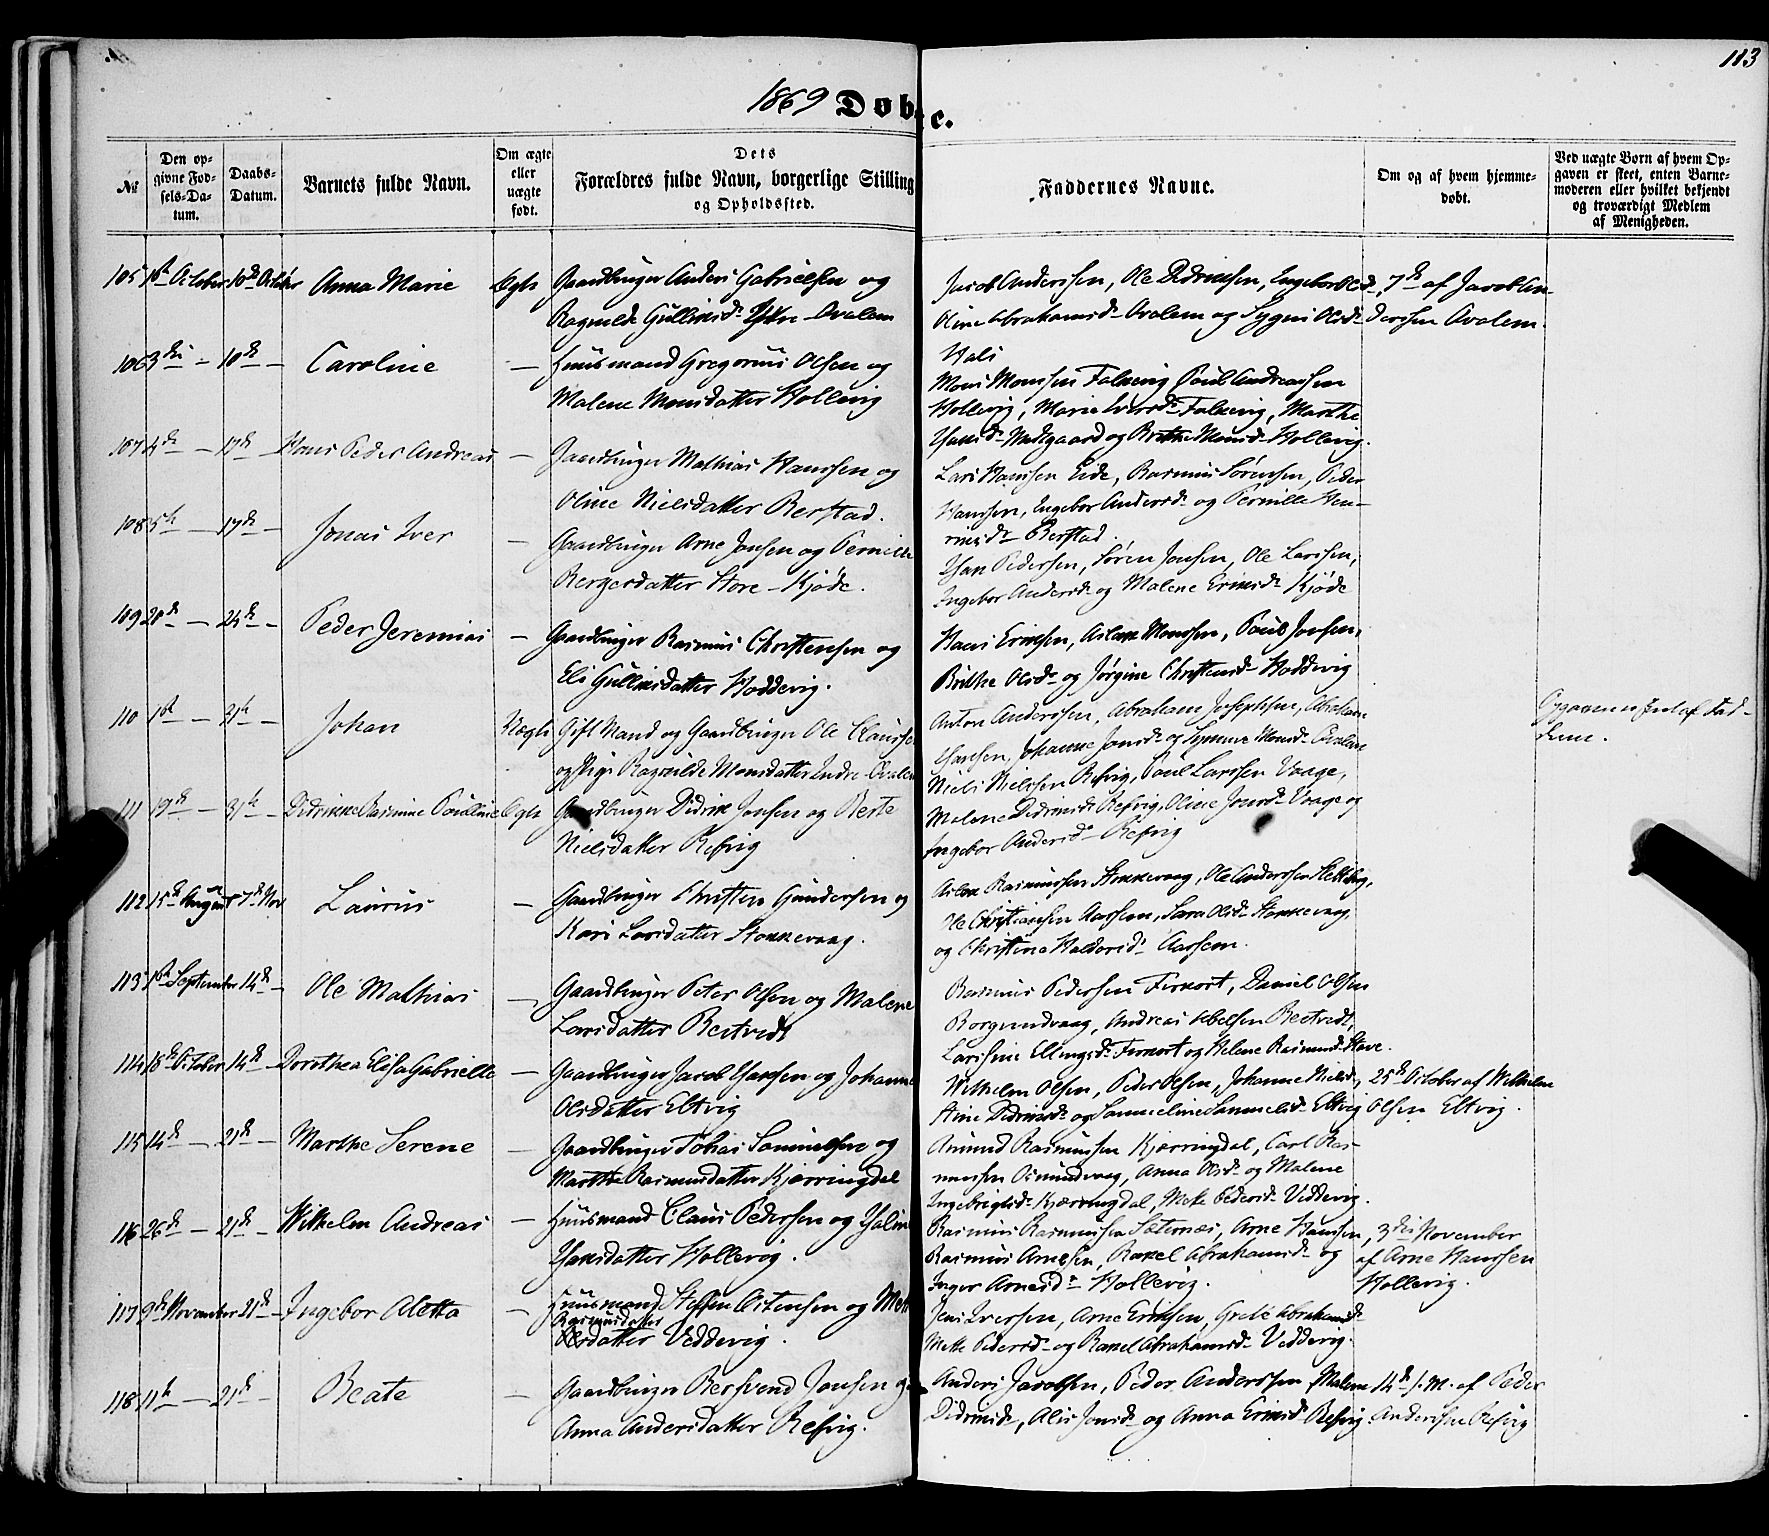 113
1869 Døbte.
No
Den op-
givne Fød-
sels-Da-
tum.
Daabs-
Datum.
Barnets fulde Navn.
Om ægte
eller
uægte
født.
Dets
Forældres fulde Navn, borgerlige Stilling
og Opholdssted.
Faddernes Navne.
Om og af hvem hjemme-
døbt.
Ved uægte Børn af hvem Op-
gaven er skeet, enten Barne-
moderen eller hvilket bekjendt
og troværdigt Medlem
af Menigheden.
105 1st October 10de October Anna Marie Ægte Gaardbruger Anders Gabrielsen og
Ragnilde Gulliksd. Ytre Ovalem
Jacob Anderssen, Ole Didriksen, Ingebor Olsd.,
Oline Abrahamsd. Ovalem og Sygni Olsd.
7de af Jacob An-
derssen Ovalem.
106 3die — 10de — Caroline — Huusmand Gregorius Olsen og
Malene Monsdatter Hollevig
Mons Monssen Falkevig Poul Andreassen
Hollevig, Marie Iversd. Falkevig, Marthe
Hansd. Nedgaard og Brithe Monsd. Hollevig.
107 4de — 17de — Hans Peder Andreas — Gaardbruger Mathias Hanssen og
Oline Nielsdatter Berstad.
Lars Hanssen Eide, Rasmus Sørenssen, Peder
Hanssen, Ingebor Andersd. og Pernille Hen-
riksd. Berstad.
108 5te — 17de — Jonas Iver — Gaardbruger Arne Jonsen og Pernille
Bergersdatter Store-Kjøde.
Hans Pedersen, Søren Jonsen, Ole Larssen,
Ingebor Andersd. og Malene Eriksd. Kjøde
109 20de — 24de — Peder Jeremias — Gaardbruger Rasmus Christensen og
Eli Gulliksdatter Hoddevig.
Hans Eriksen, Aslak Monssen, Poul Jonsen,
Brithe Olsd. og Jørgine Christensd. Hoddevig
110 1st — 31te — Johan Uægte Gift Mand og Gaardbruger Ole Claussen
og Pige Ragnilde Monsdatter Indre Ovalem
Anton Anderssen, Abraham Josephsen, Abraham
Hanssen, Johanne Jonsd. og Synneve Monsd. Ovalem
Opgaven er skeet af Fad-
deren.
111 19de — 31te — Didrikke Rasmine Pouline Ægte Gaardbruger Didrik Jonsen og Berte
Nielsdatter Refvig
Niels Nielssen Refvig, Poul Larssen Vaage,
Malene Didriksd. Refvig, Oline Jonsd. Vaage og
Ingebor Andersd. Refvig
112 15de August 7de Nov Laurus — Gaardbruger Christen Gunderssen og
Kari Larsdatter Stokkevaag.
Aslak Rasmussen Stokkevaag, Ole Anderssen
Ole Christiansen Aarsem, Sara Olsd. Stokkevaag,
og Christine Haldorsd. Aarsem.
113 1st September 14de — Ole Mathias — Gaardbruger Peter Olsen og Malene
Larsdatter Bertvedt
Rasmus Pedersen Furkort, Daniel Olsen
Borgundvaag, Andreas Abelsen Bertvedt,
Larsine Ellingsd. Furkort og Helene Rasmusd. Hove.
114 18de October 14de — Dorothea Elisa Gabrielle — Gaardbruger Jacob Hansen og Johanne
Olsdatter Eltvig
Wilhelm Olsen, Peder Olsen, Johanne Nielsd.,
Stine Didriksd. og Sammeline Samuelsd. Eltvig
25de October af Wilhelm
Olsen Eltvig.
115 14de — 21de — Marthe Serene — Gaardbruger Tobias Samuelsen og
Marthe Rasmusdatter Kjærringdal
Amund Rasmussen Kjærringdal, Carl Ras-
mussen Osmundvaag, Anna Olsd. og Malene
Ingebrigtsd. Kjærringdal, Mette Pedersd. Veddevig.
116 26de — 21de — Wilhelm Andreas — Huusmand Claus Pedersen og Haline
Hansdatter Hollevig.
Rasmus Rasmussen Sæternæs, Arne Hanssen,
Rasmus Arnesen, Rakel Abrahamsd. og
Inger Arnesd. Hollevig.
3die November
af Arne Hanssen
Hollevig.
117 9de November 21de — Ingebor Oletta — Huusmand Steffen Ostensen og Mette
Rasmusdatter
Veddevig.
Jens Iverssen, Arne Eriksen, Grete Abrahamsd.
Mette Pedersd. og Rakel Abrahamsd. Veddevig.
118 11te — 21de — Beate — Gaardbruger Bersvend Jonsen og
Anna Andersdatter Refvig.
Anders Jacobsen, Peder Anderssen, Malene
Didriksd., Alis Jonsd. og Anna Eriksd. Refvig.
14de s. M. af Peder
Anderssen Refvig